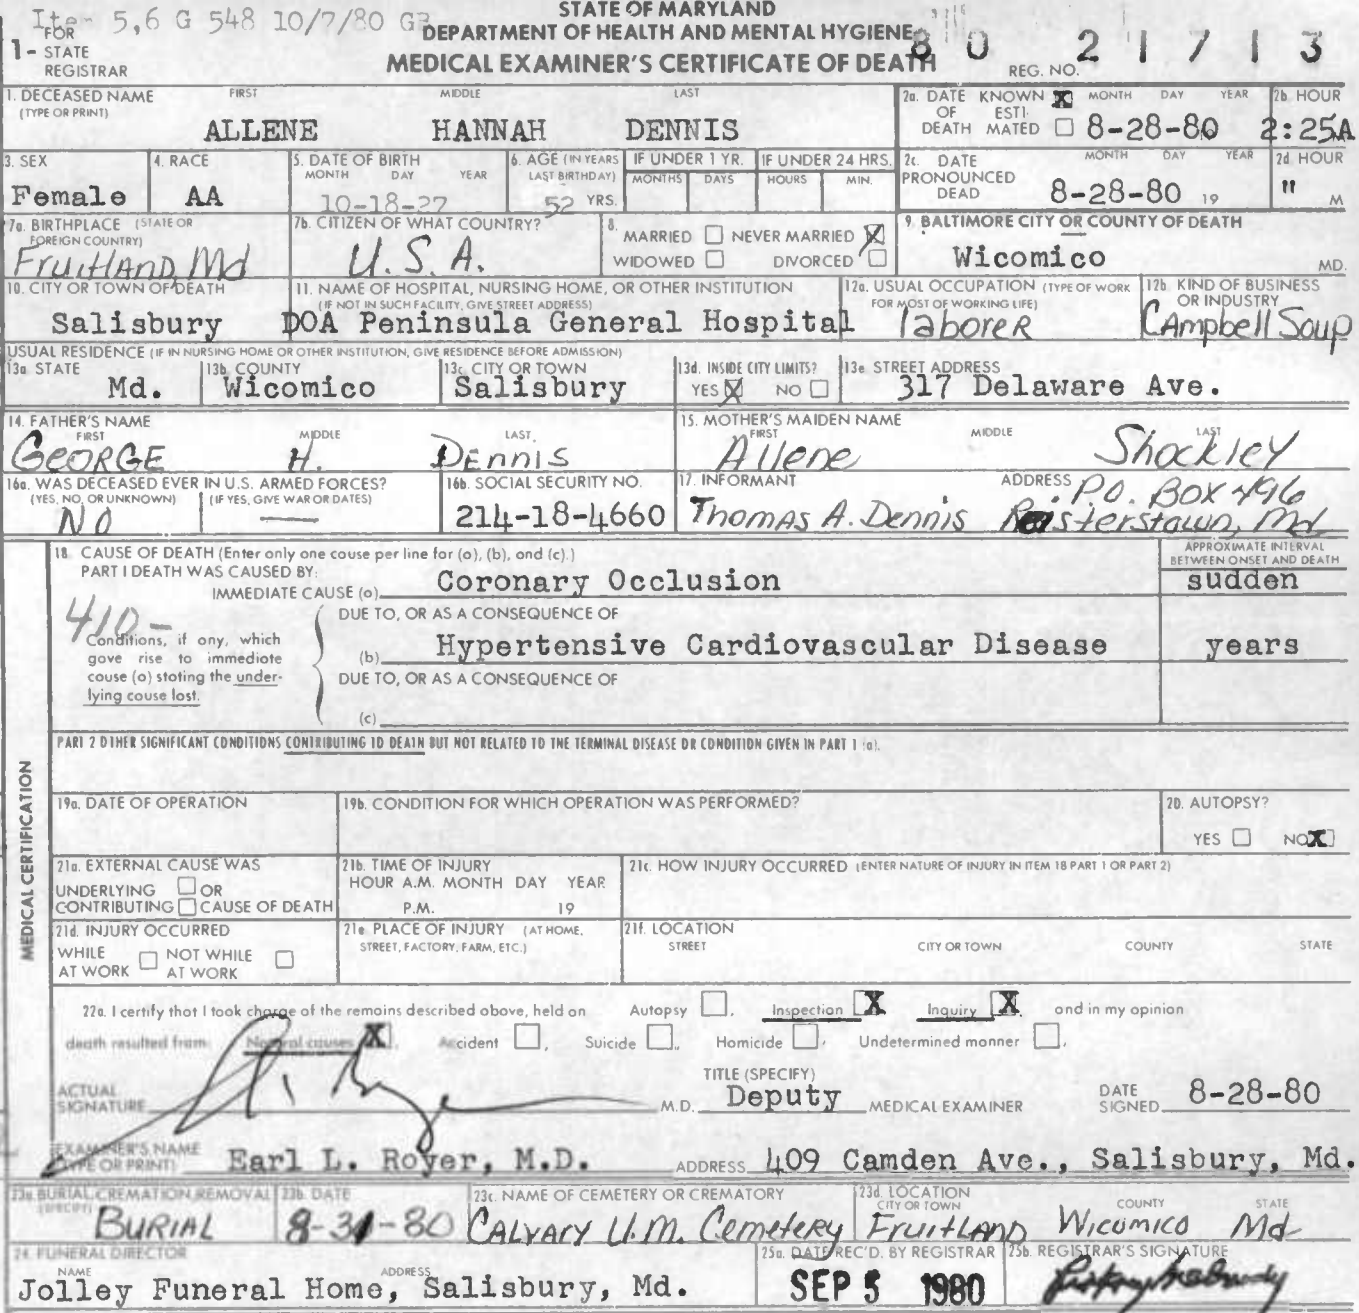 Item 5,6 G 548 10/7/80 GB
STATE OF MARYLAND
FOR DEPARTMENT OF HEALTH AND MENTAL HYGIENE
1- STATE
REGISTRAR MEDICAL EXAMINER'S CERTIFICATE OF DEATH REG. NO. 80 21713
1. DECEASED NAME FIRST MIDDLE LAST
(TYPE OR PRINT)
ALLENE HANNAH DENNIS
2a. DATE KNOWN X MONTH DAY YEAR 2b. HOUR
OF ESTI-
DEATH MATED 8-28-80 2:25A
3. SEX 4. RACE 5. DATE OF BIRTH 6. AGE (IN YEARS IF UNDER 1 YR. IF UNDER 24 HRS.
MONTH DAY YEAR LAST BIRTHDAY) MONTHS DAYS HOURS MIN.
Female AA 10-18-27 52 YRS.
2c. DATE MONTH DAY YEAR 2d. HOUR
PRONOUNCED
DEAD 8-28-80 19 " M
7a. BIRTHPLACE (STATE OR
FOREIGN COUNTRY)
Fruitland, Md
7b. CITIZEN OF WHAT COUNTRY?
U.S.A.
8. MARRIED NEVER MARRIED X
WIDOWED DIVORCED
9. BALTIMORE CITY OR COUNTY OF DEATH
Wicomico MD.
10. CITY OR TOWN OF DEATH
Salisbury
11. NAME OF HOSPITAL, NURSING HOME, OR OTHER INSTITUTION
(IF NOT IN SUCH FACILITY, GIVE STREET ADDRESS)
DOA Peninsula General Hospital
12a. USUAL OCCUPATION (TYPE OF WORK
FOR MOST OF WORKING LIFE)
laborer
12b. KIND OF BUSINESS
OR INDUSTRY
Campbell Soup
USUAL RESIDENCE (IF IN NURSING HOME OR OTHER INSTITUTION, GIVE RESIDENCE BEFORE ADMISSION)
13a. STATE 13b. COUNTY 13c. CITY OR TOWN 13d. INSIDE CITY LIMITS? 13e. STREET ADDRESS
Md. Wicomico Salisbury YES X NO 317 Delaware Ave.
14. FATHER'S NAME
FIRST MIDDLE LAST
George H. Dennis
15. MOTHER'S MAIDEN NAME
FIRST MIDDLE LAST
Allene Shockley
16a. WAS DECEASED EVER IN U.S. ARMED FORCES?
(YES, NO, OR UNKNOWN) (IF YES, GIVE WAR OR DATES)
NO —
16b. SOCIAL SECURITY NO.
214-18-4660
17. INFORMANT ADDRESS P.O. Box 496
Thomas A. Dennis Reisterstown, Md
18. CAUSE OF DEATH (Enter only one cause per line for (a), (b), and (c).)
APPROXIMATE INTERVAL
BETWEEN ONSET AND DEATH
PART I DEATH WAS CAUSED BY:
IMMEDIATE CAUSE (a) Coronary Occlusion sudden
410-
DUE TO, OR AS A CONSEQUENCE OF
Conditions, if any, which
gave rise to immediate
cause (a) stating the under-
lying cause last.
(b) Hypertensive Cardiovascular Disease years
DUE TO, OR AS A CONSEQUENCE OF
(c)
PART 2 OTHER SIGNIFICANT CONDITIONS CONTRIBUTING TO DEATH BUT NOT RELATED TO THE TERMINAL DISEASE OR CONDITION GIVEN IN PART 1 (a).
MEDICAL CERTIFICATION
19a. DATE OF OPERATION 19b. CONDITION FOR WHICH OPERATION WAS PERFORMED? 20. AUTOPSY?
YES NO X
21a. EXTERNAL CAUSE WAS
UNDERLYING OR
CONTRIBUTING CAUSE OF DEATH
21b. TIME OF INJURY
HOUR A.M. MONTH DAY YEAR
P.M. 19
21c. HOW INJURY OCCURRED (ENTER NATURE OF INJURY IN ITEM 18 PART 1 OR PART 2)
21d. INJURY OCCURRED
WHILE NOT WHILE
AT WORK AT WORK
21e. PLACE OF INJURY (AT HOME,
STREET, FACTORY, FARM, ETC.)
21f. LOCATION
STREET CITY OR TOWN COUNTY STATE
22a. I certify that I took charge of the remains described above, held on Autopsy , Inspection X Inquiry X, and in my opinion
death resulted from: Natural causes X, Accident , Suicide , Homicide , Undetermined manner ,
ACTUAL
SIGNATURE M.D.
TITLE (SPECIFY)
Deputy MEDICAL EXAMINER
DATE
SIGNED 8-28-80
EXAMINER'S NAME
(TYPE OR PRINT) Earl L. Royer, M.D. ADDRESS 409 Camden Ave., Salisbury, Md.
23a. BURIAL, CREMATION, REMOVAL
(SPECIFY)
Burial
23b. DATE
8-31-80
23c. NAME OF CEMETERY OR CREMATORY
Calvary U.M. Cemetery
23d. LOCATION
CITY OR TOWN COUNTY STATE
Fruitland Wicomico Md
24. FUNERAL DIRECTOR
NAME ADDRESS
Jolley Funeral Home, Salisbury, Md.
25a. DATE REC'D. BY REGISTRAR
SEP 5 1980
25b. REGISTRAR'S SIGNATURE